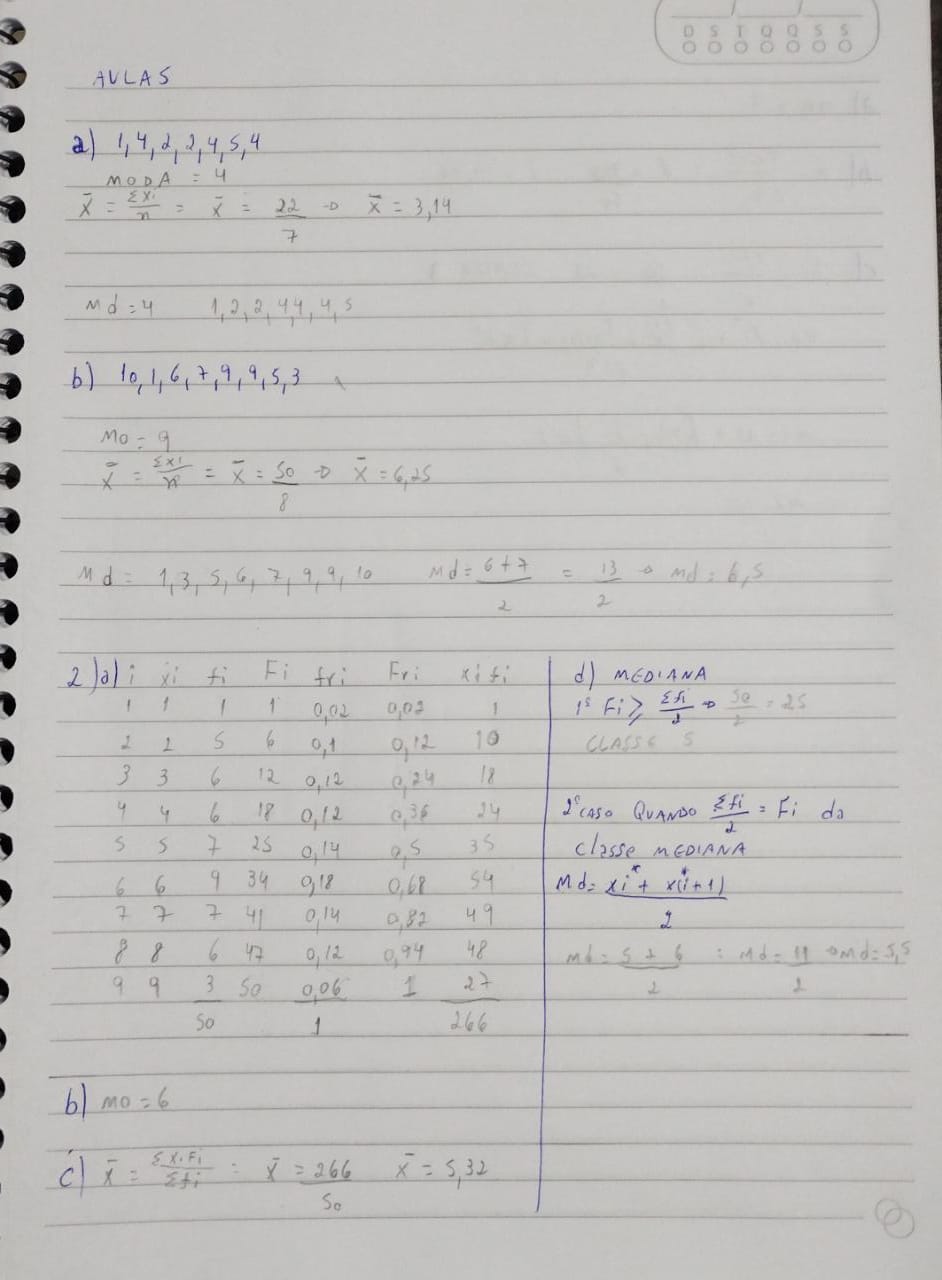 D S T Q Q S S
AULA 5
a) 1, 4, 2, 2, 4, 5, 4
MODA = 4
x̄ = Σxi/n = x̄ = 22/7 → x̄ = 3,14
Md = 4 1, 2, 2, 4, 4, 4, 5
b) 10, 1, 6, 7, 9, 9, 5, 3
Mo = 9
x̄ = Σxi/n = x̄ = 50/8 → x̄ = 6,25
Md = 1, 3, 5, 6, 7, 9, 9, 10 Md = 6+7/2 = 13/2 → Md = 6,5
2) a) i xi fi Fi fri Fri xifi
1 1 1 1 0,02 0,02 1
2 2 5 6 0,1 0,12 10
3 3 6 12 0,12 0,24 18
4 4 6 18 0,12 0,36 24
5 5 7 25 0,14 0,5 35
6 6 9 34 0,18 0,68 54
7 7 7 41 0,14 0,82 49
8 8 6 47 0,12 0,94 48
9 9 3 50 0,06 1 27
50 1 266
b) Mo = 6
c) x̄ = Σxifi/Σfi = x̄ = 266/50 x̄ = 5,32
d) MEDIANA
1º Fi ≥ Σfi/2 → 50/2 = 25
CLASSE 5
2º CASO QUANDO Σfi/2 = Fi da
classe MEDIANA
Md = xi* + x(i*+1)/2
Md = 5+6/2 : Md = 11/2 → Md = 5,5